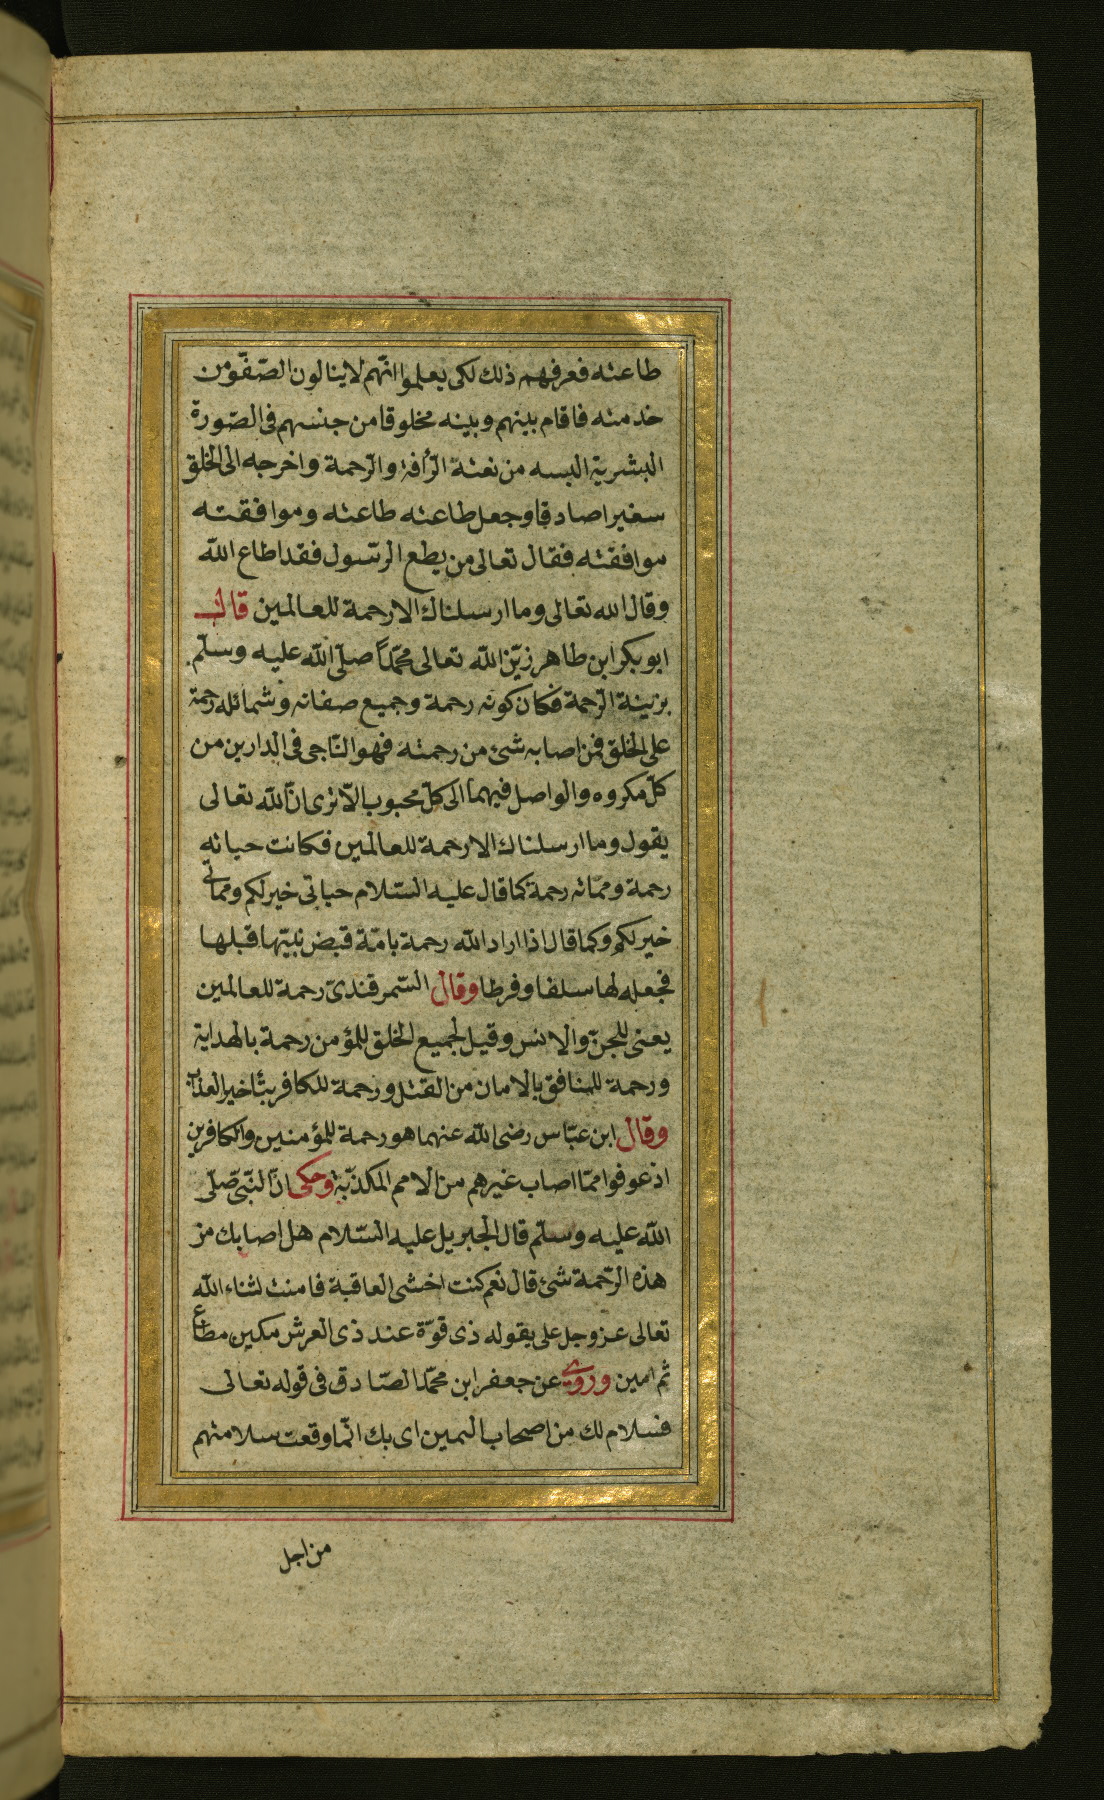 طاعته فعرفهم ذلك لكى يعلموا انّهم لاينالون الصّفو من
خدمته فاقام بينهم وبينه مخلوقا من جنسهم فى الصّورة
البشرية البسه من نعته الرّأفة والرّحمة واخرجه الى الخلق
سفيرا صادقا وجعل طاعته طاعته وموافقته
موافقته فقال تعالى من يطع الرسول فقد اطاع الله
وقال الله تعالى وما ارسلناك الا رحمة للعالمين قال
ابو بكر ابن طاهر زيّن الله تعالى محمّداً صلّى الله عليه وسلّم
بزينة الرّحمة فكان كونه رحمة وجميع صفاته وشمائله رحمة
على الخلق فمن اصابه شئ من رحمته فهو النّاجى فى الدارين من
كلّ مكروه والواصل فيهما الى كلّ محبوب الا ترى انّ الله تعالى
يقول وما ارسلناك الا رحمة للعالمين فكانت حياته
رحمة ومماته رحمة كما قال عليه السّلام حياتى خير لكم ومماتى
خير لكم وكما قال اذا اراد الله رحمة بامّة قبض نبيّها قبلها
فجعله لها سلفا وفرطا وقال السّمرقندىّ رحمة للعالمين
يعنى للجنّ والانس وقيل لجميع الخلق للمؤمن رحمة بالهداية
ورحمة للمنافق بالامان من القتل ورحمة للكافر بتأخير العذاب
وقال ابن عبّاس رضى الله عنهما هو رحمة للمؤمنين والكافرين
اذ عوفوا ممّا اصاب غيرهم من الامم المكذّبة وحكى انّ النّبىّ صلّى
الله عليه وسلّم قال لجبريل عليه السّلام هل اصابك من
هذه الرّحمة شئ قال نعم كنت اخشى العاقبة فامنت لثناء الله
تعالى عز وجل على بقوله ذى قوّة عند ذى العرش مكين مطاع
ثم امين وروى عن جعفر ابن محمّد الصّادق فى قوله تعالى
فسلام لك من اصحاب اليمين اى بك انّما وقعت سلامتهم
من اجل